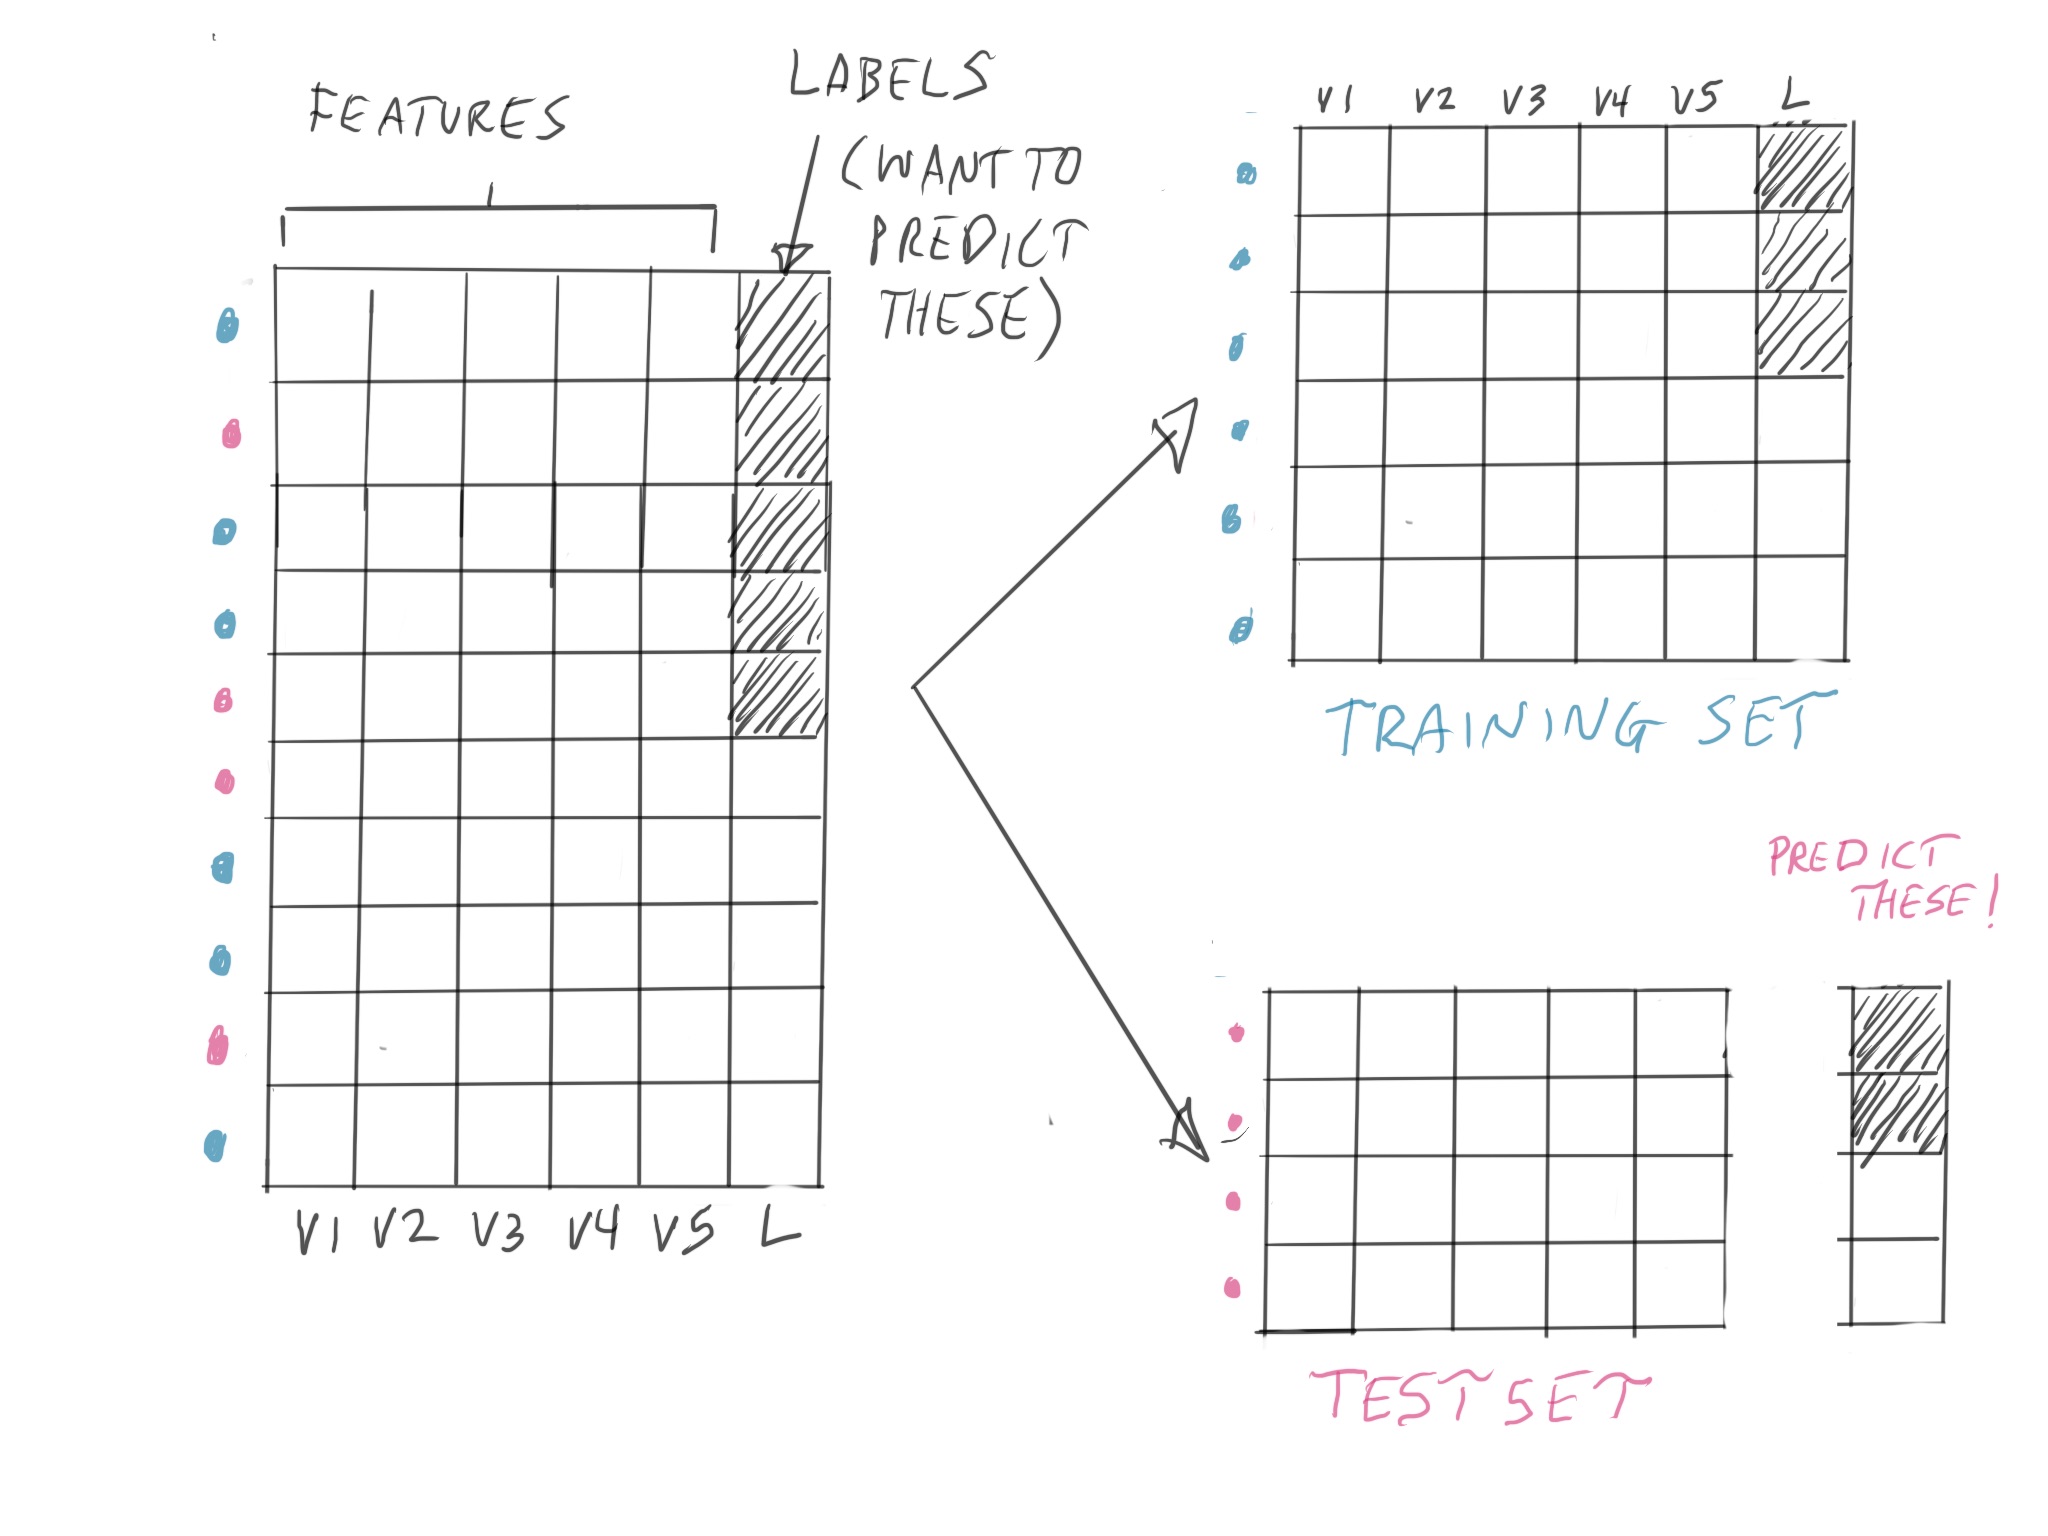 FEATURES
LABELS
(WANT TO
PREDICT
THESE)
V1 V2 V3 V4 V5 L
V1 V2 V3 V4 V5 L
TRAINING SET
PREDICT
THESE!
TEST SET